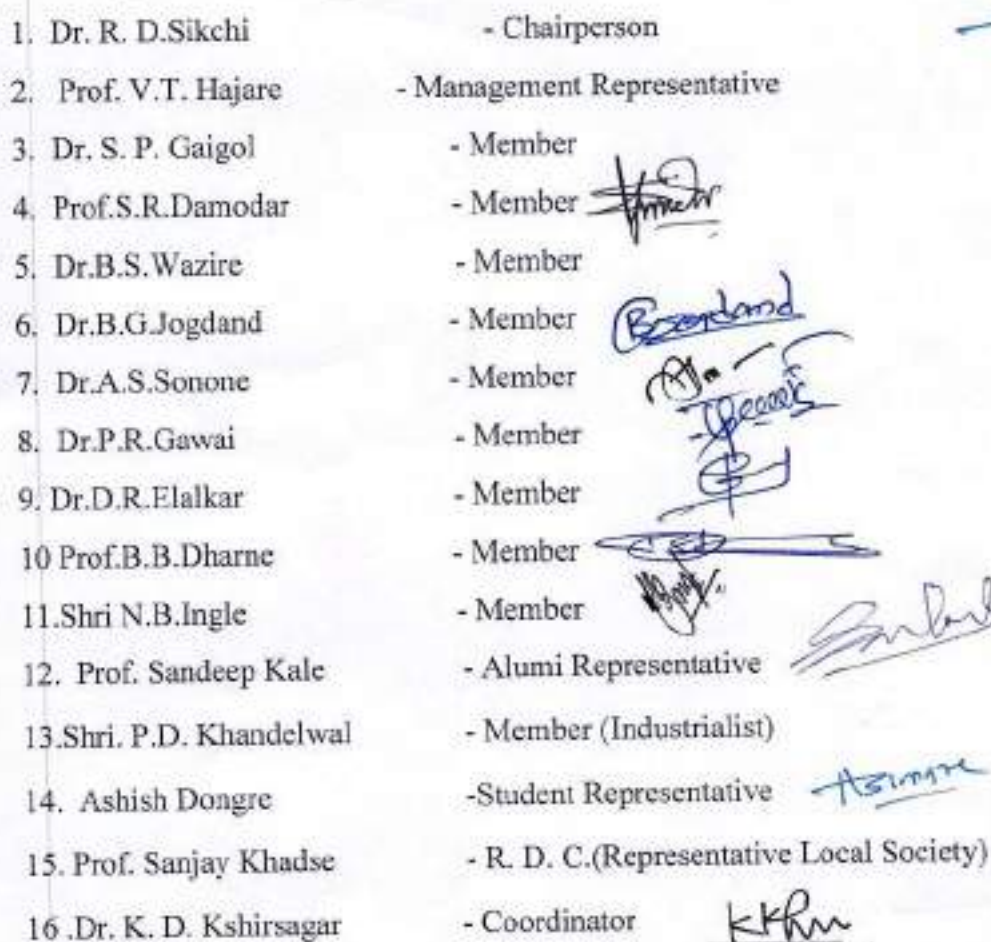 1. Dr. R. D.Sikchi - Chairperson
2. Prof. V.T. Hajare - Management Representative
3. Dr. S. P. Gaigol - Member
4. Prof.S.R.Damodar - Member
5. Dr.B.S.Wazire - Member
6. Dr.B.G.Jogdand - Member
7. Dr.A.S.Sonone - Member
8. Dr.P.R.Gawai - Member
9. Dr.D.R.Elalkar - Member
10 Prof.B.B.Dharne - Member
11.Shri N.B.Ingle - Member
12. Prof. Sandeep Kale - Alumi Representative
13.Shri. P.D. Khandelwal - Member (Industrialist)
14. Ashish Dongre -Student Representative
15. Prof. Sanjay Khadse - R. D. C.(Representative Local Society)
16 .Dr. K. D. Kshirsagar - Coordinator